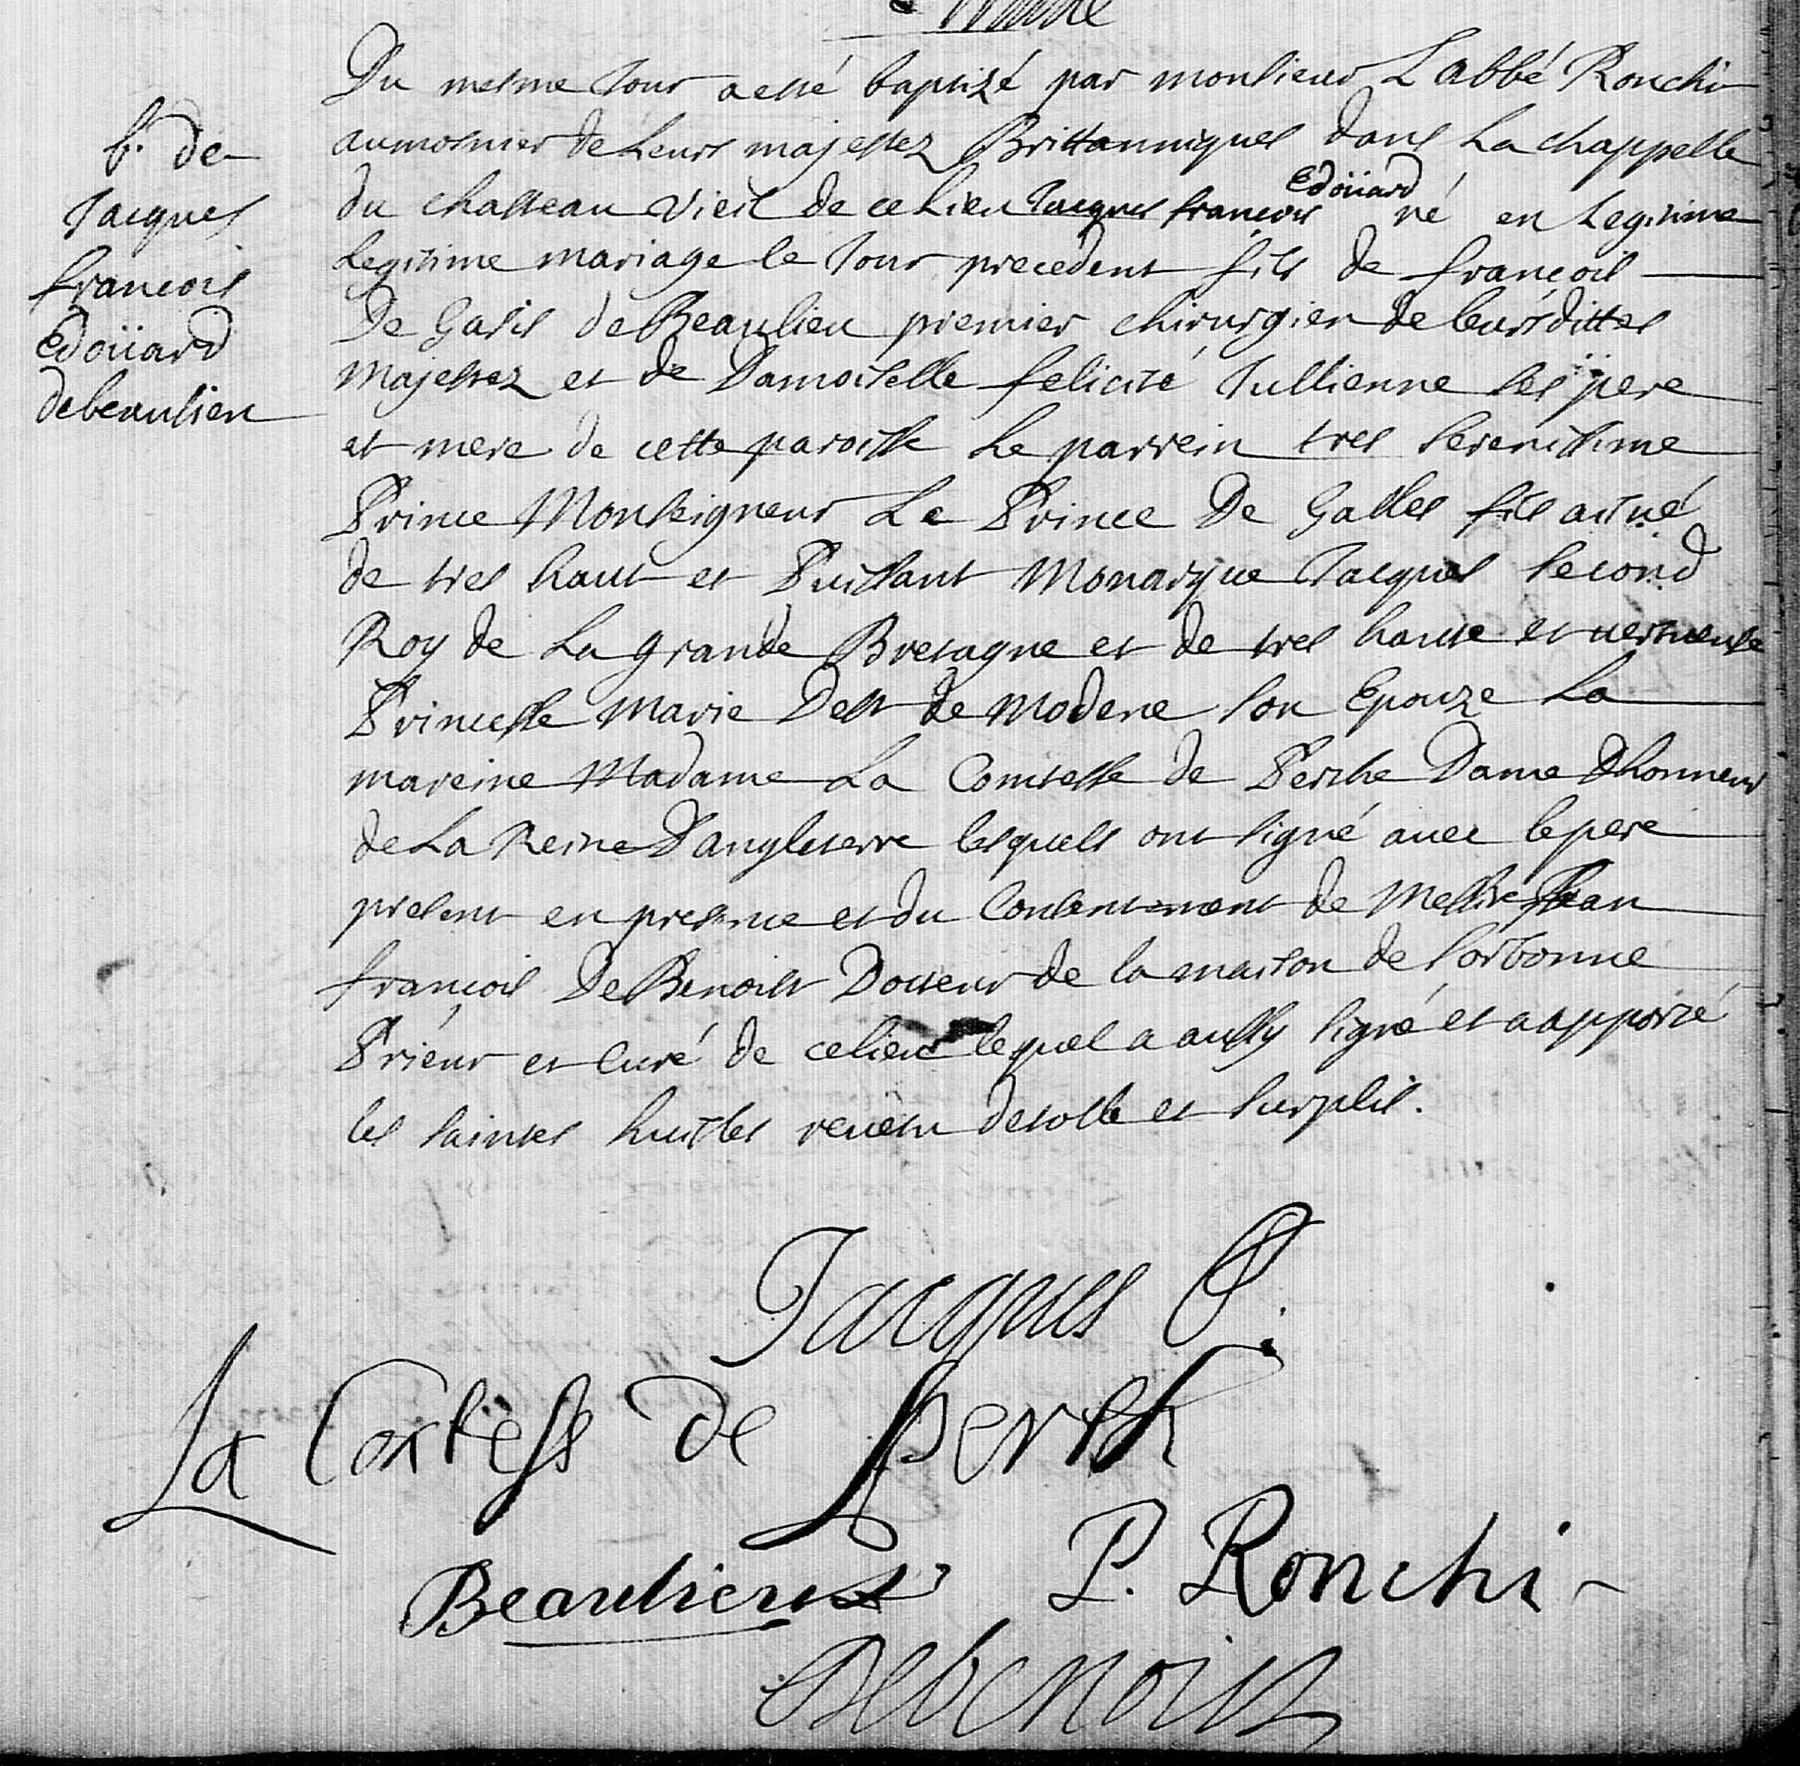 b. de
Jacques
françois
Edoüard
debeaulieu
Du mesme Jour a esté baptizé par monsieur L'abbé Ronchi
aumosnier de Leurs majestez Brittanniques dans La chappelle
du chasteau vieil de ce Lieu Jacques françois Edoüard né en Legitime
Legitime mariage le Jour precedent fils de françois
De Gasis de Beaulieu premier chirurgien de leursdittes
Majestez et de Damoiselle felicité Jullienne ses pere
et mere de cette paroisse Le parrein tres serenissime
Prince Monseigneur Le Prince De Galles fils aisné
de tres haut et Puissant Monarque Jacques second
Roy de La grande Bretagne et de tres haute et vertueuse
Princesse Marie Dest de Modene son Epouze La
mareine Madame La Comtesse de Perthe Dame Dhonneur
de La Reine D'angleterre lesquels ont signé avec le pere
present en presence et du Consentement de Messire Jean
françois De Benoist Docteur de la maison de sorbonne
Prieur et Curé de ce lieu lequel a aussy signé et a apporté
les saintes huilles revestu destolle et surplis.
Jacques P.
La Contess de Perth
Beaulieu P. Ronchi
Debenoist